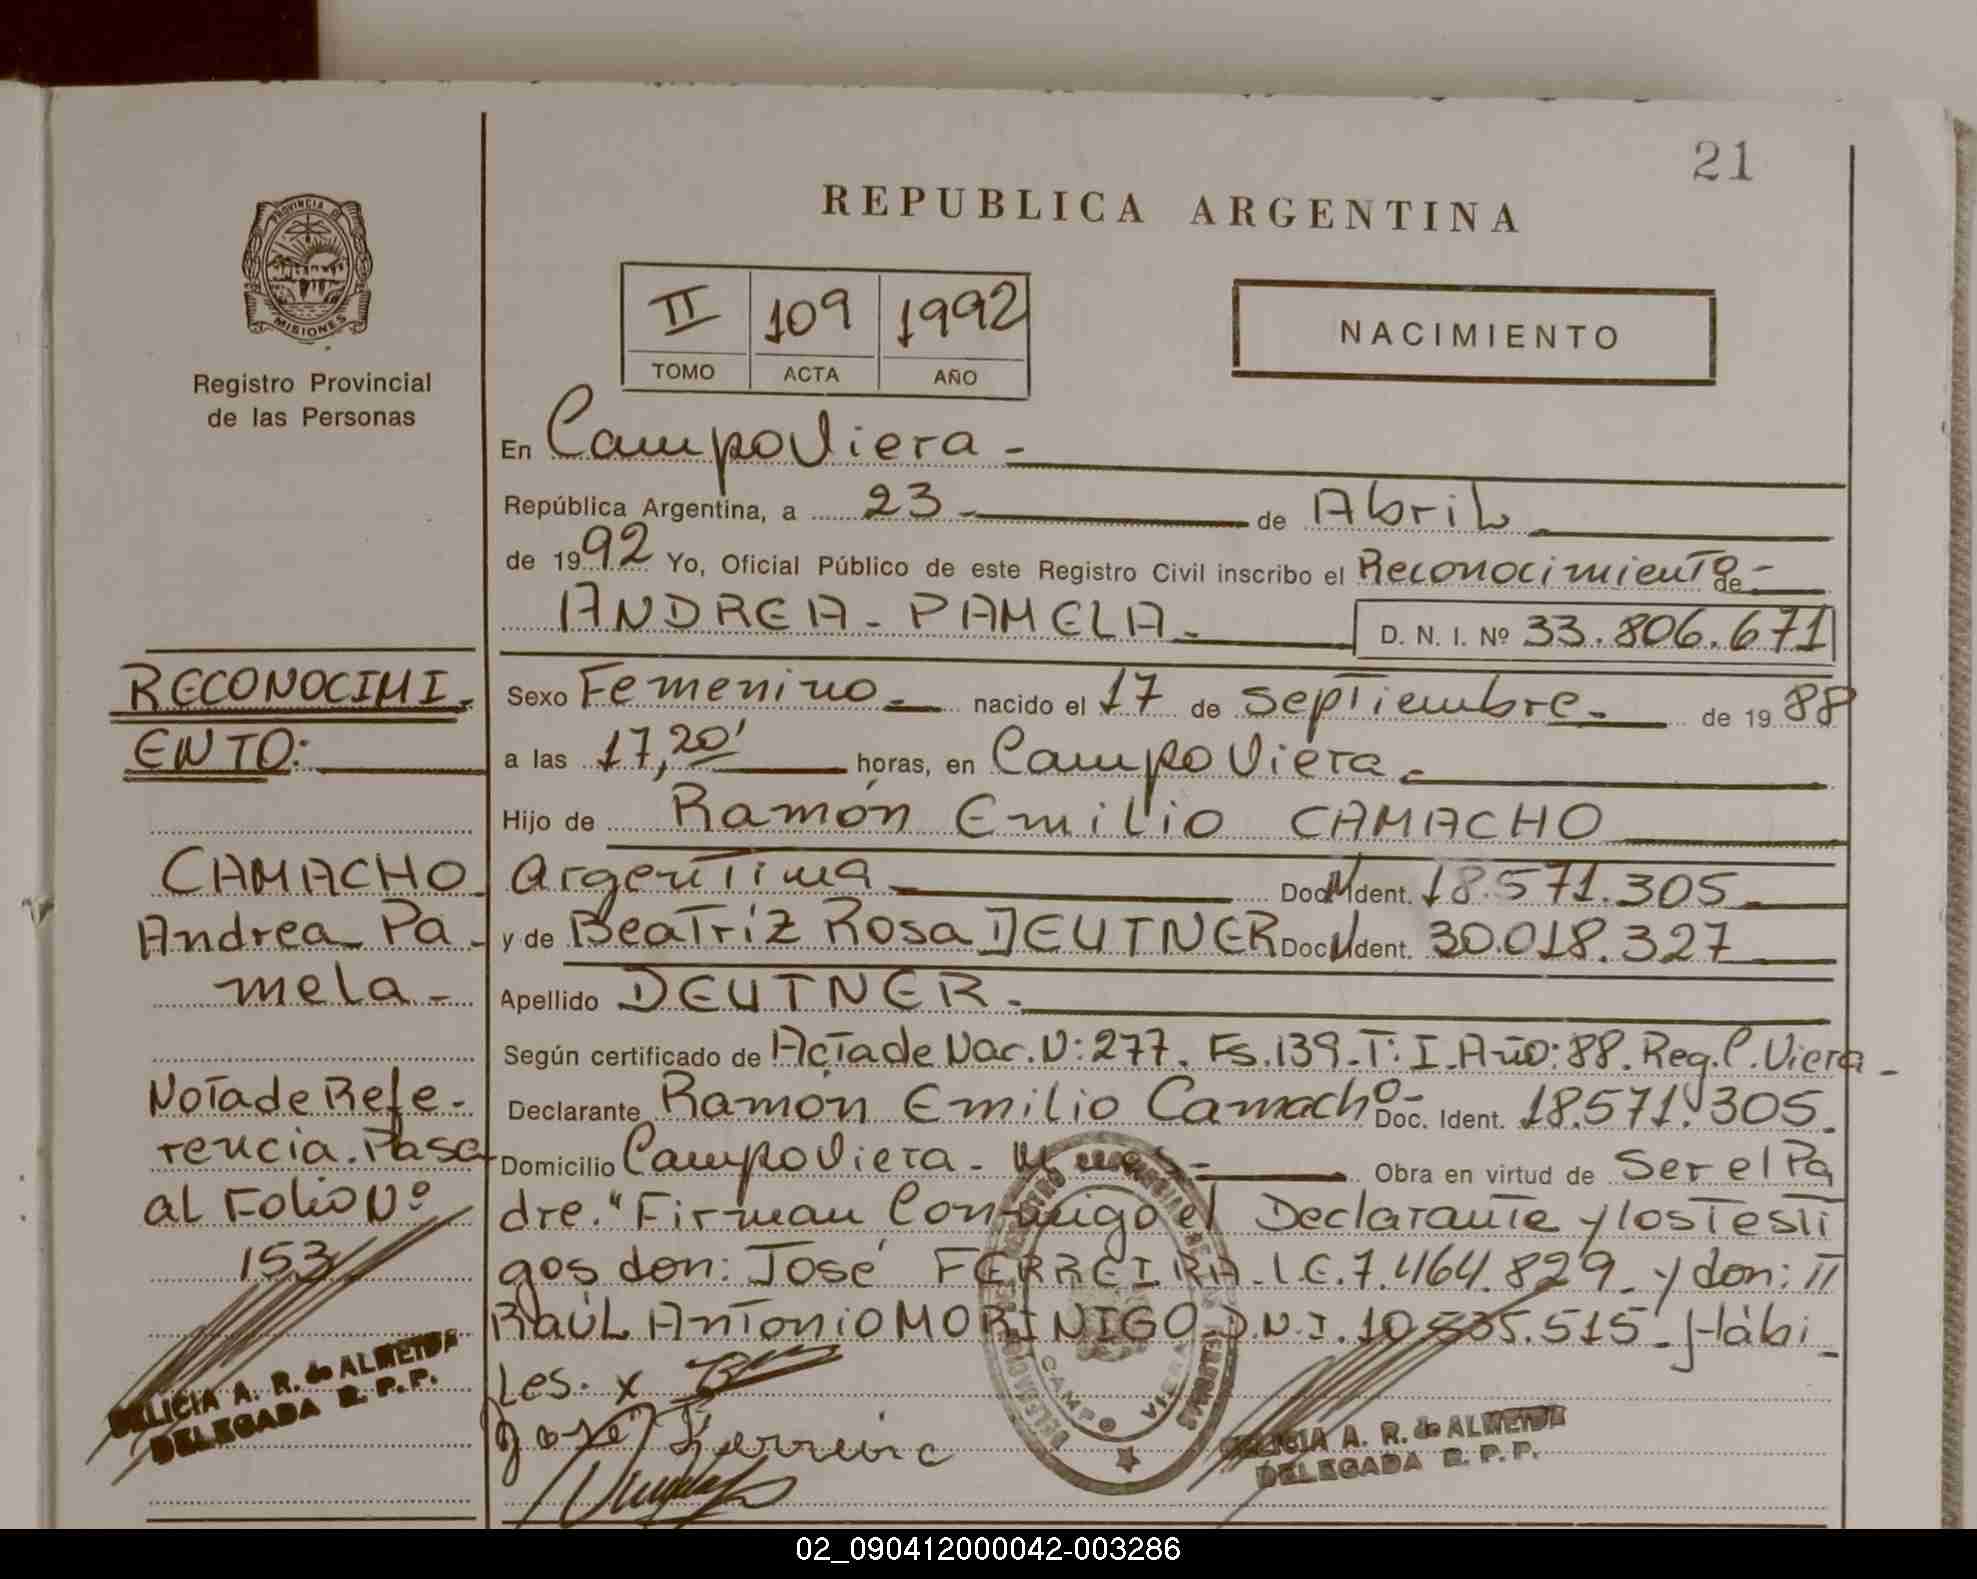 21
REPUBLICA ARGENTINA
PROVINCIA D
MISIONES
Registro Provincial
de las Personas
II 109 1992
TOMO ACTA AÑO
NACIMIENTO
En Campo Viera -
República Argentina, a 23 - de Abril
de 1992 Yo, Oficial Público de este Registro Civil inscribo el Reconocimiento - de
ANDREA - PAMELA - D. N. I. Nº 33.806.671
Sexo Femenino - nacido el 17 de septiembre - de 1988
a las 17,20' horas, en Campo Viera -
Hijo de Ramón Emilio CAMACHO
Argentina Doc. Ident. 18.571.305
y de Beatriz Rosa DEUTNER Doc. Ident. 30.018.327
Apellido DEUTNER.
Según certificado de Acta de Nac. N: 277. Fs. 139. T: I. Año: 88. Reg. C. Viera -
Declarante Ramón Emilio Camacho - Doc. Ident. 18.571.305.
Domicilio Campo Viera - Obra en virtud de Ser el Pa
dre. "Firman Conmigo el Declarante y los Testi
gos don: José FERREIRA. L.E. 7.464.829 - y don: II
RAÚL Antonio MORINIGO. D.N.I. 10.535.515 - Hábi -
les. x
José Ferreira
RECONOCIMI -
ENTO:
CAMACHO
Andrea Pa -
mela -
Nota de Refe -
rencia. Pasa
al Folio Nº
153
DELICIA A. R. de ALMEIDA
DELEGADA R. P. P.
CAMPO VIERA
DELICIA A. R. de ALMEIDA
DELEGADA R. P. P.
02_090412000042-003286